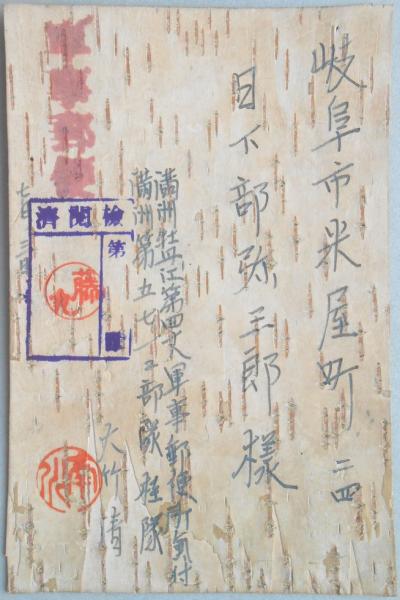 岐阜市米屋町二四
日下部弥三郎様
満洲牡丹江第四八軍事郵便所気付
満洲第五七一三部隊桂隊
大竹清
軍事郵便
検閲済
第
藤